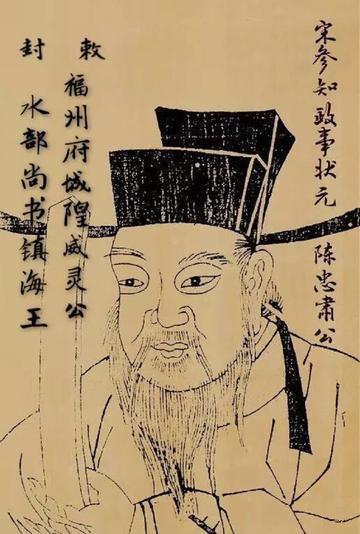 宋参知政事状元 陈忠肃公
敕 福州府城隍威灵公
封 水部尚书镇海王